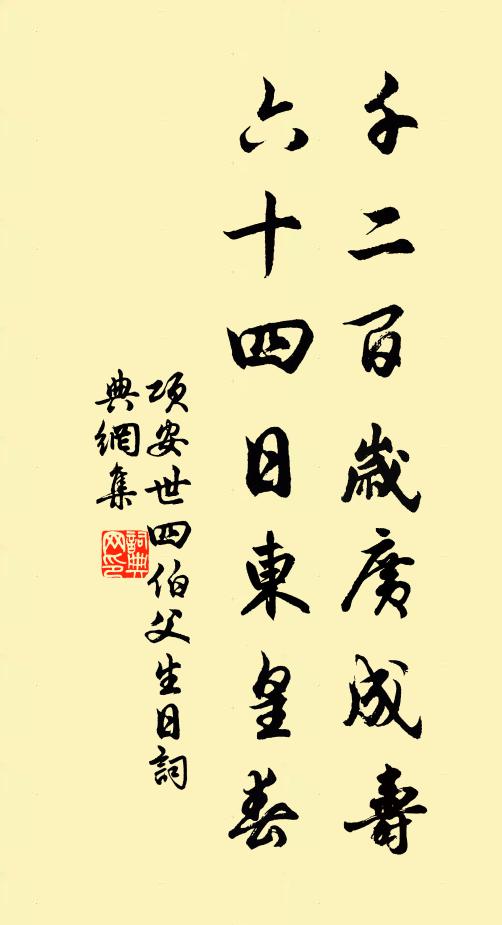 千二百歲廣成壽
六十四日東皇春
項安世四伯父生日詞
典網集
詞典
网印